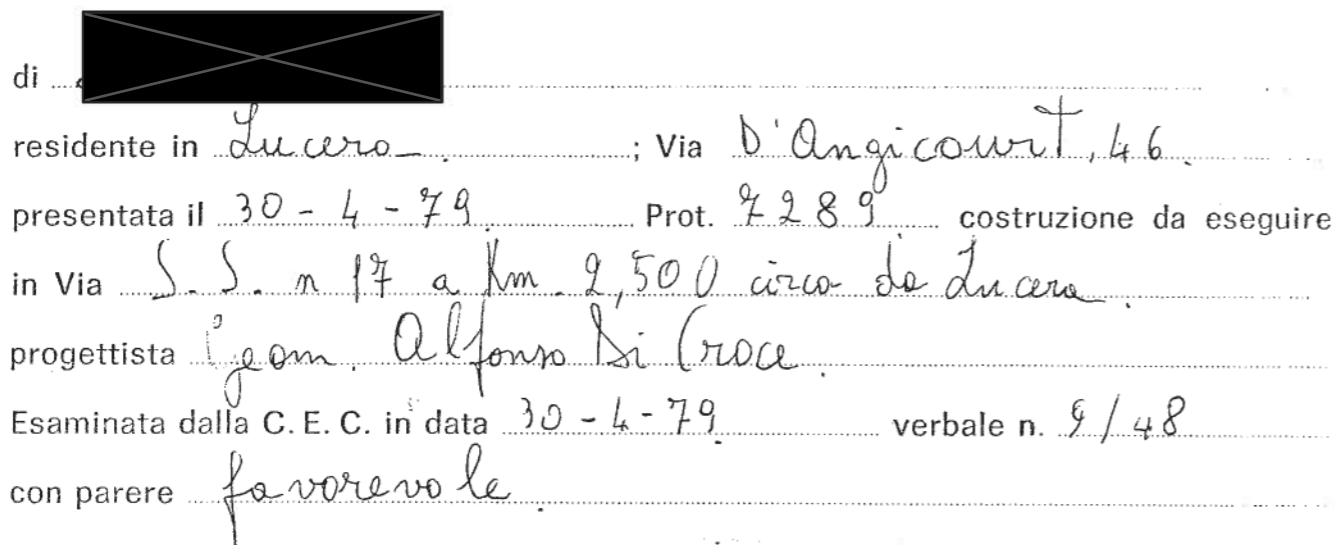 di
residente in Lucera ; Via D'Angicourt, 46.
presentata il 30-4-79 Prot. 7289 costruzione da eseguire
in Via S.S. n 17 a Km. 2,500 circa da Lucera.
progettista geom. Alfonso Di Croce.
Esaminata dalla C.E.C. in data 30-4-79 verbale n. 9/48
con parere favorevole.